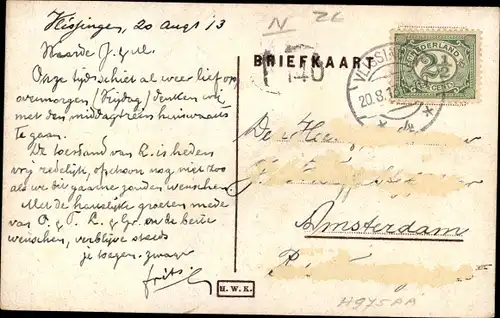 Vlissingen, 20 Aug. '13
Waarde J. g.
Onze tijd schiet al weer lief op
overmorgen (Vrijdag) denken wij
met den middagtrein huiswaarts
te gaan.
De toestand van R. is heden
vrij redelijk ofschoon nog niet zoo
als we dit gaarne zouden wenschen.
Met de hartelijke groeten mede
van en de beste
wenschen, verblijve steeds
je toegen. zwager
Frits
N
BRIEFKAART
140
NEDERLAND
2½
CENT
VLISSIN
20.8.1
De Heer
Amsterdam
H.W.K.
H975AA